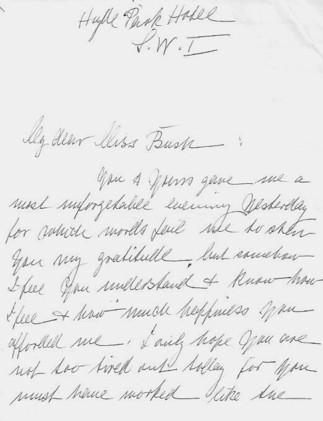 Hyde Park Hotel
S.W.I
My dear Miss Bush :
You & Yours gave me a
most unforgetable evening Yesterday
for which words fail me to show
You my gratitude, but somehow
I feel You understand & know how
I feel & how much happiness You
afforded me. I only hope You are
not too tired out today for You
must have worked like the